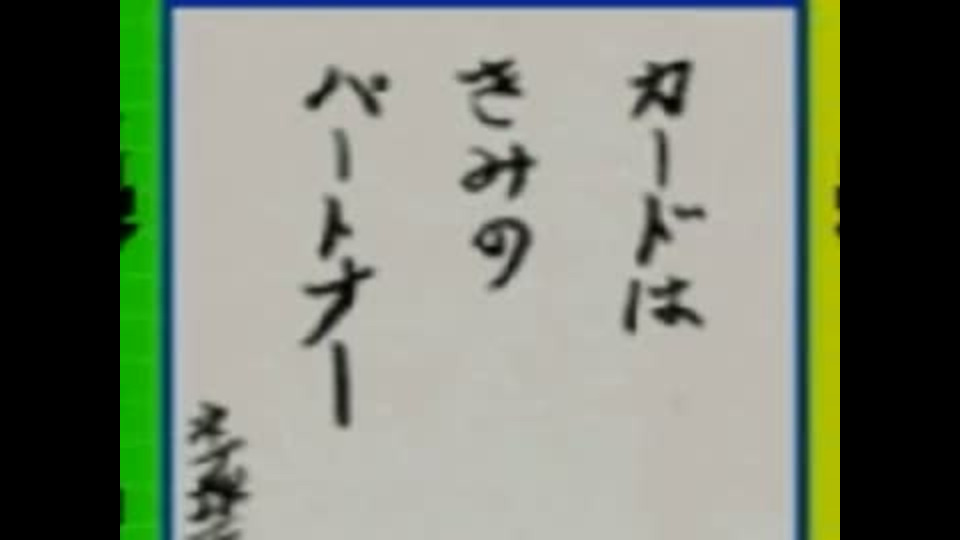 カードは
きみの
パートナー